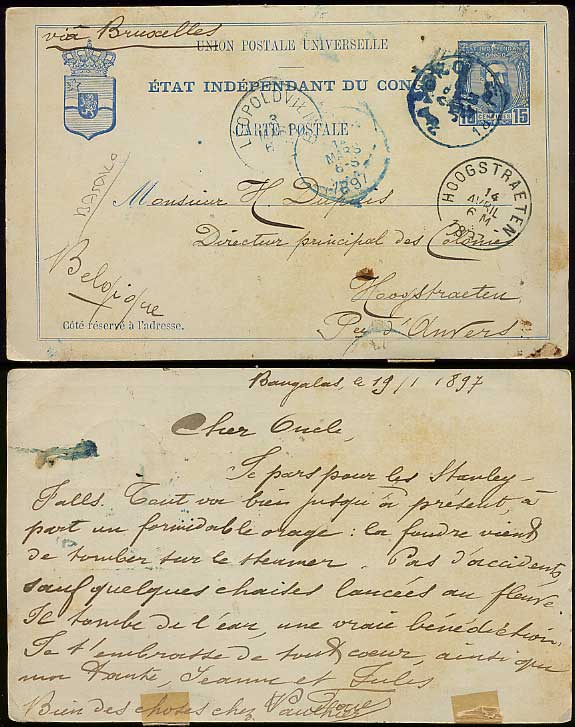 via Bruxelles
UNION POSTALE UNIVERSELLE
ÉTAT INDÉPENDANT DU CON
CARTE POSTALE
ETAT INDEPENDANT DU CONGO
15
LEOPOLDVILLE
3
14
MARS
6-S
1897
HOOGSTRAETEN
14
AVRIL
6 M
1897
Monsieur H. Dupuis
Directeur principal des Colonies
Hoogstraeten
Belgique
d'Anvers.
Côté réservé à l'adresse.
Bangalas, le 19/1 1897
Cher Oncle,
Je pars pour les Stanley-
Falls. Tout va bien jusqu'à présent, à
part un formidable orage : la foudre vient
de tomber sur le steamer. Pas d'accidents,
sauf quelques chaises lancées au fleuve.
Il tombe de l'eau, une vraie bénédiction.
Je t'embrasse de tout cœur, ainsi que
ma tante, Jeanne et Jules
Bien des choses chez